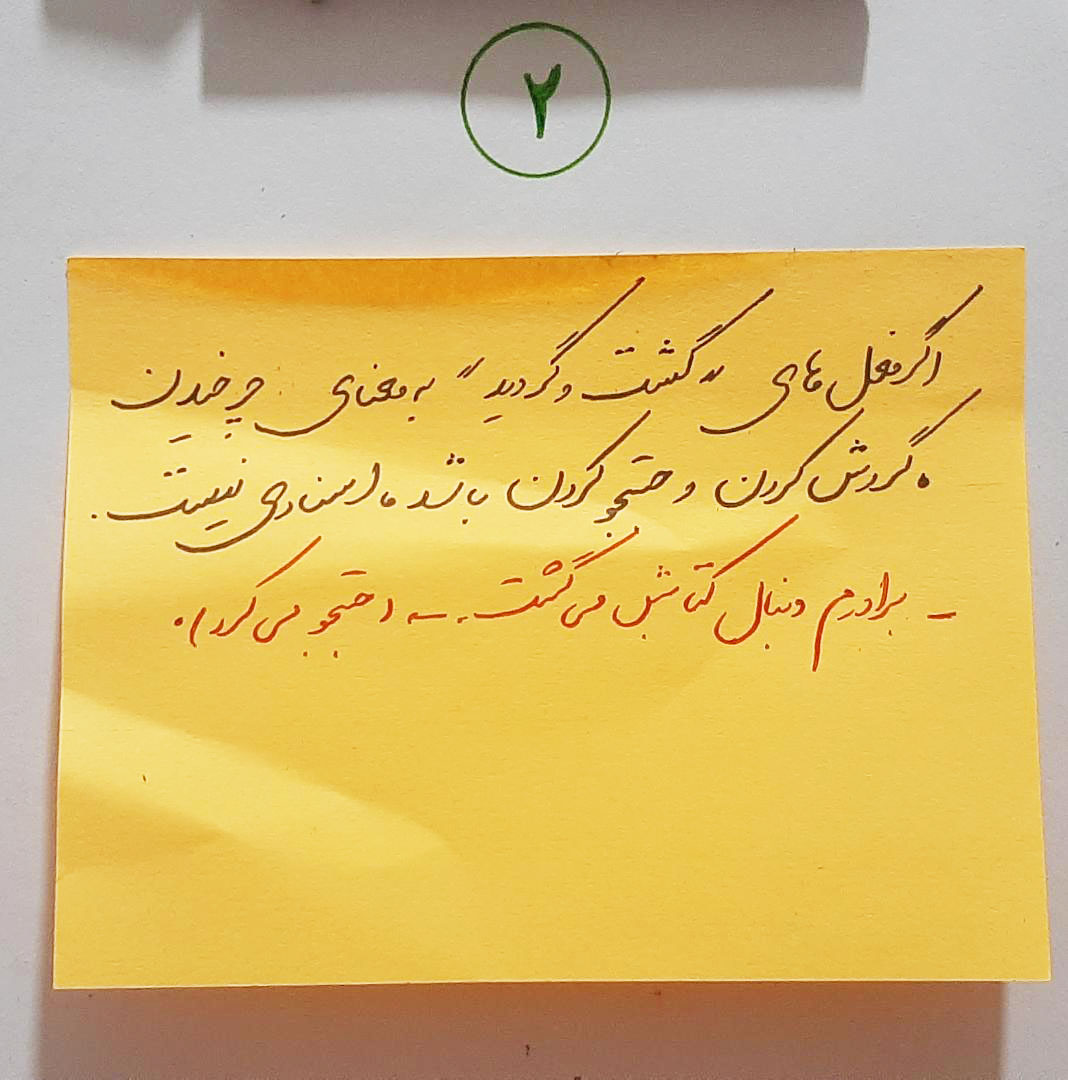 ۲
اگر فعل های "گشت و گردید" به معنای چرخیدن
، گردش کردن و جستجو کردن باشد، اسنادی نیست.
- برادرم دنبال کتابش می گشت. ← (جستجو می کرد).